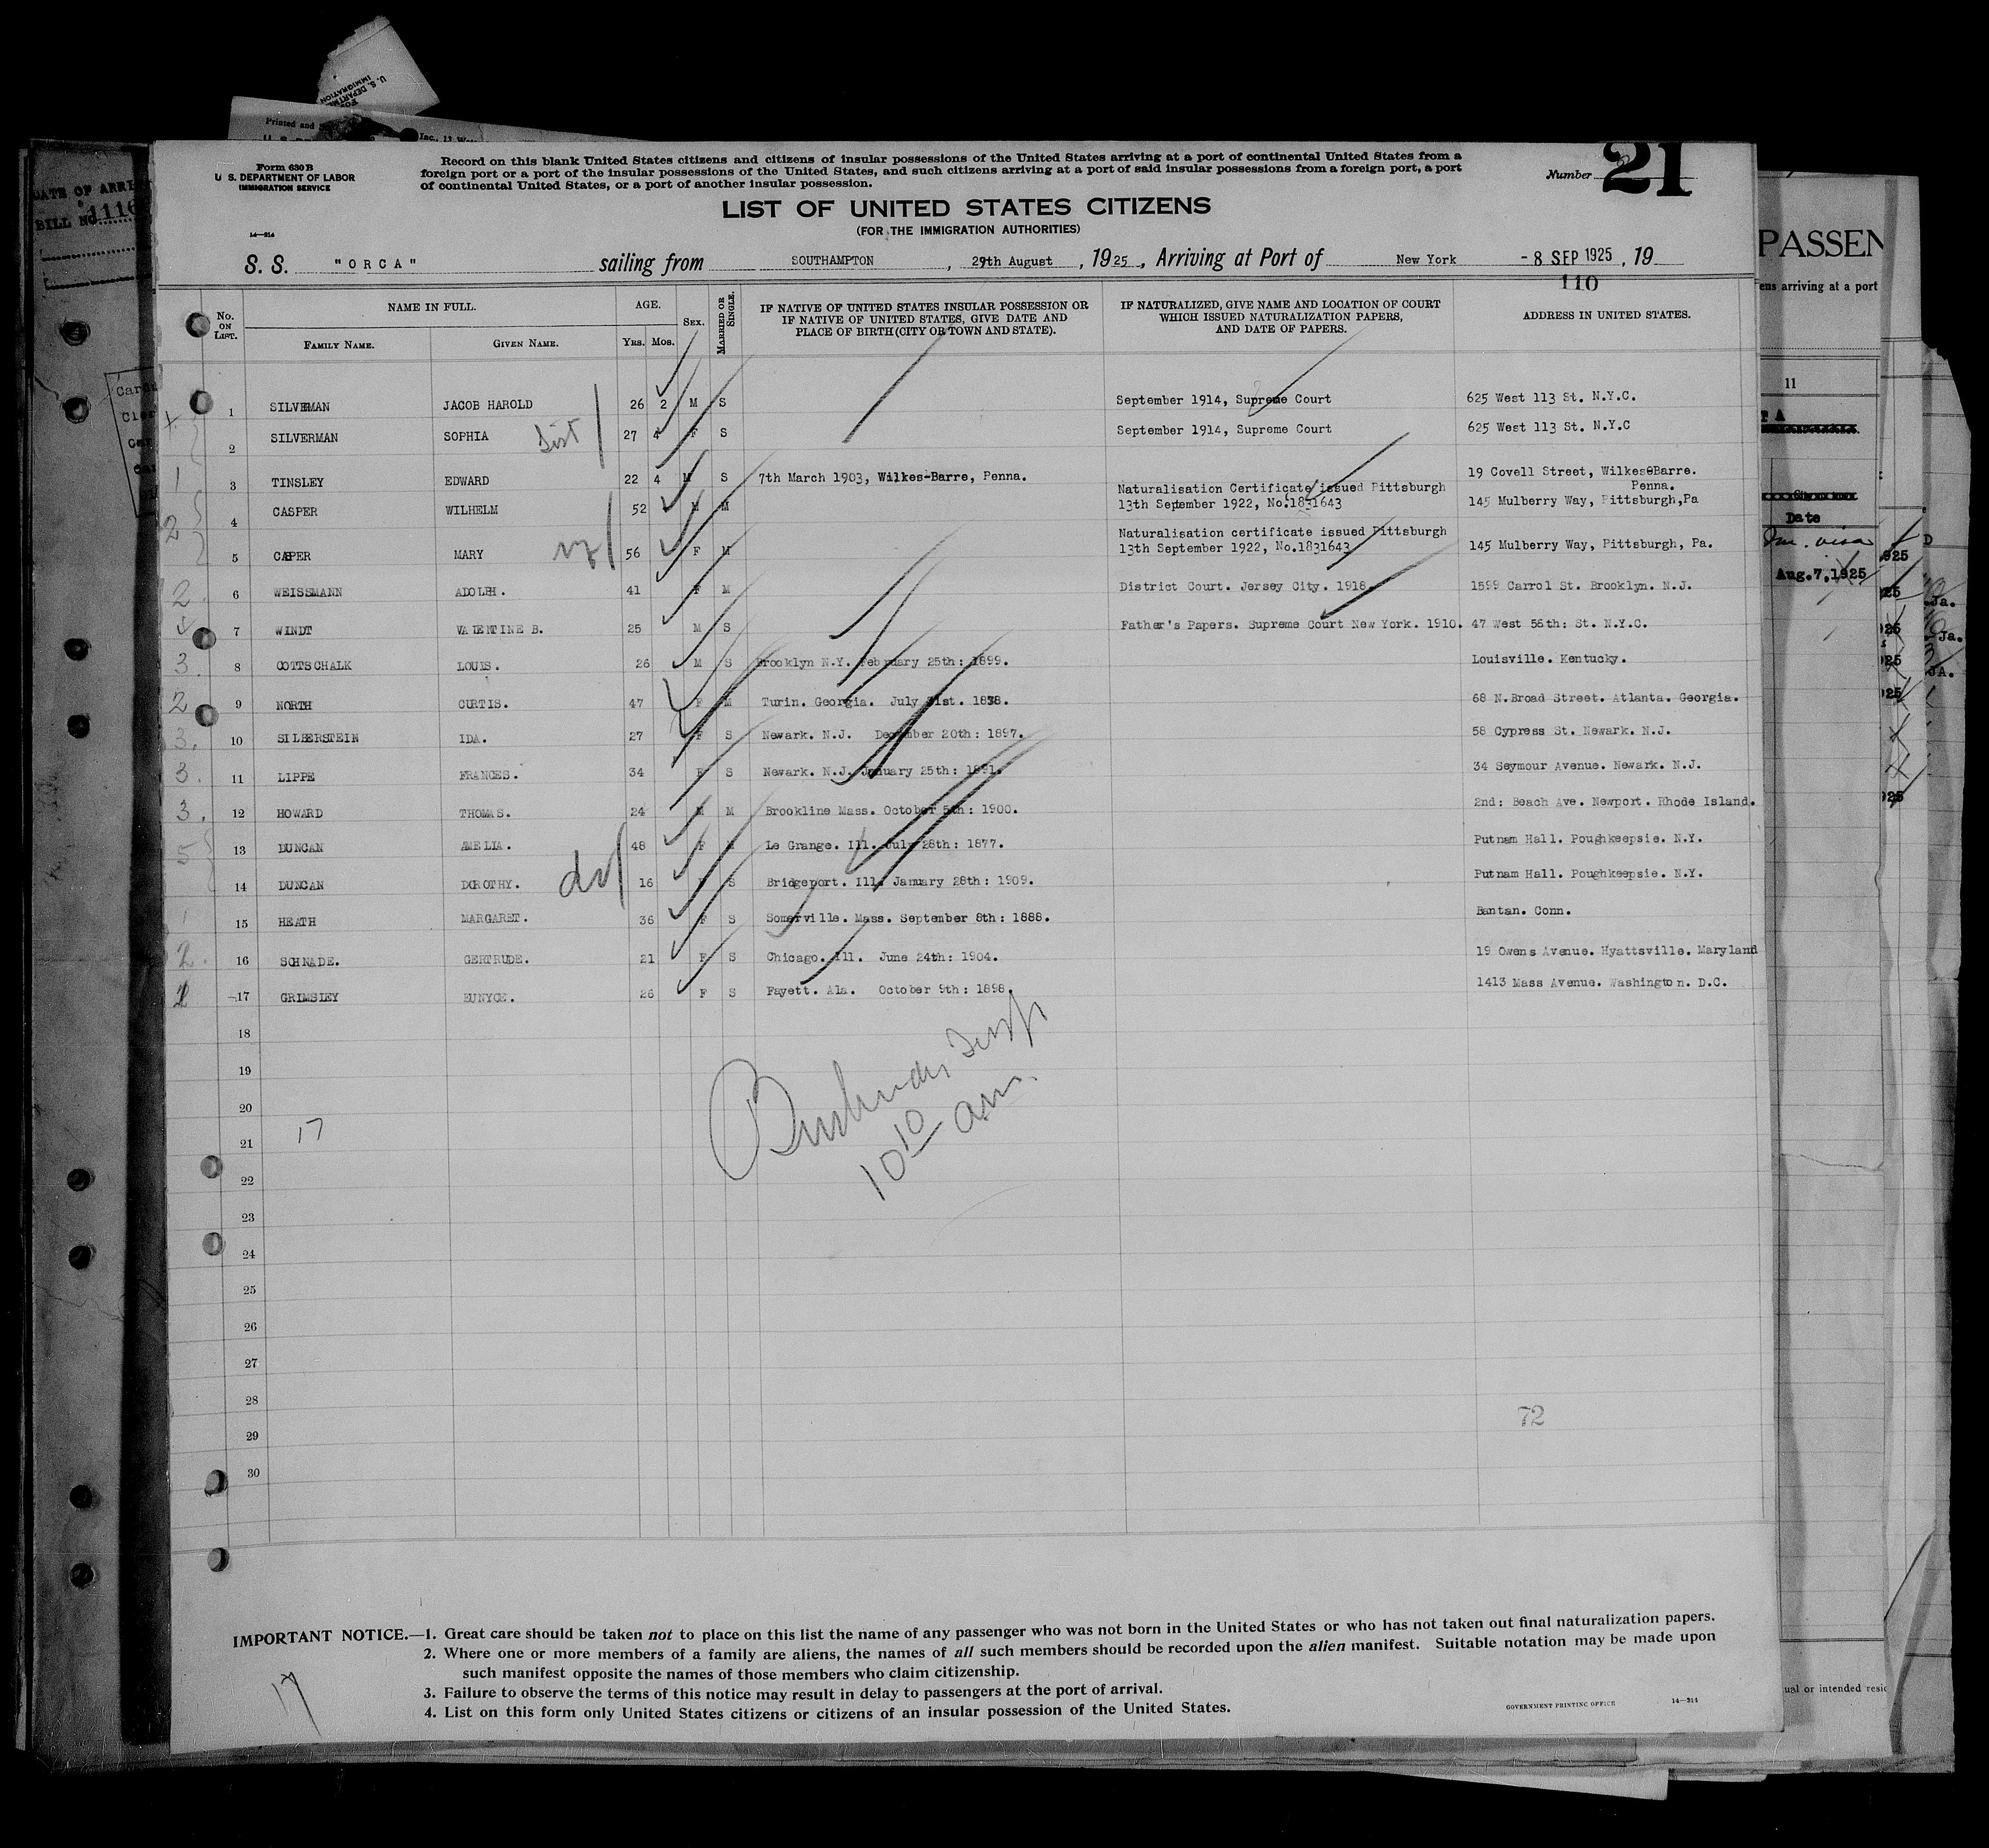 U. S. DEPARTMENT
IMMIGRATION
Printed and
Inc., 13
DATE OF ARRI
BILL NO. 1116
Form 630 B
U S. DEPARTMENT OF LABOR
IMMIGRATION SERVICE
14—214
Record on this blank United States citizens and citizens of insular possessions of the United States arriving at a port of continental United States from a
foreign port or a port of the insular possessions of the United States, and such citizens arriving at a port of said insular possessions from a foreign port, a port
of continental United States, or a port of another insular possession.
Number 21
LIST OF UNITED STATES CITIZENS
(FOR THE IMMIGRATION AUTHORITIES)
S. S. "ORCA" sailing from SOUTHAMPTON, 29th August, 1925, Arriving at Port of New York - 8 SEP 1925, 19
110
No. ON LIST. NAME IN FULL. AGE. SEX. MARRIED OR SINGLE. IF NATIVE OF UNITED STATES INSULAR POSSESSION OR IF NATIVE OF UNITED STATES, GIVE DATE AND PLACE OF BIRTH (CITY OR TOWN AND STATE). IF NATURALIZED, GIVE NAME AND LOCATION OF COURT WHICH ISSUED NATURALIZATION PAPERS, AND DATE OF PAPERS. ADDRESS IN UNITED STATES.
FAMILY NAME. GIVEN NAME. YRS. MOS.
1 SILVERMAN JACOB HAROLD 26 2 M S September 1914, Supreme Court 625 West 113 St. N.Y.C.
2 SILVERMAN SOPHIA 27 4 F S September 1914, Supreme Court 625 West 113 St. N.Y.C
3 TINSLEY EDWARD 22 4 M S 7th March 1903, Wilkes-Barre, Penna. 19 Covell Street, Wilkes-Barre. Penna.
4 CASPER WILHELM 52 M M Naturalisation Certificate issued Pittsburgh 13th September 1922, No.1831643 145 Mulberry Way, Pittsburgh,Pa
5 CASPER MARY 56 F M Naturalisation certificate issued Pittsburgh 13th September 1922, No.1831643 145 Mulberry Way, Pittsburgh, Pa.
6 WEISSMANN ADOLPH. 41 F M District Court. Jersey City. 1918. 1599 Carrol St. Brooklyn. N.J.
7 WINDT VALENTINE B. 25 M S Father's Papers. Supreme Court New York. 1910. 47 West 56th: St. N.Y.C.
8 COTTSCHALK LOUIS. 26 M S Brooklyn N.Y. February 25th: 1899. Louisville. Kentucky.
9 NORTH CURTIS. 47 F M Turin. Georgia. July 31st. 1878. 68 N.Broad Street. Atlanta. Georgia.
10 SILBERSTEIN IDA. 27 F S Newark. N.J. December 20th: 1897. 58 Cypress St. Newark. N.J.
11 LIPPE FRANCES. 34 F S Newark. N.J. January 25th: 1891. 34 Seymour Avenue. Newark. N.J.
12 HOWARD THOMAS. 24 M M Brookline Mass. October 5th: 1900. 2nd: Beach Ave. Newport. Rhode Island.
13 DUNCAN AMELIA. 48 F Le Grange. Ill. July 28th: 1877. Putnam Hall. Poughkeepsie. N.Y.
14 DUNCAN DOROTHY. 16 F S Bridgeport. Ill. January 28th: 1909. Putnam Hall. Poughkeepsie. N.Y.
15 HEATH MARGARET. 36 F S Somerville. Mass. September 8th: 1888. Bantan. Conn.
16 SCHNADE. GERTRUDE. 21 F S Chicago. Ill. June 24th: 1904. 19 Owens Avenue. Hyattsville. Maryland
17 GRIMSLEY EUNYCE. 26 F S Fayett. Ala. October 9th: 1898. 1413 Mass Avenue. Washington. D.C.
18
19
20
21 17
22
23
24
25
26
27
28
29
30
10 10 am.
72
IMPORTANT NOTICE.—1. Great care should be taken not to place on this list the name of any passenger who was not born in the United States or who has not taken out final naturalization papers.
2. Where one or more members of a family are aliens, the names of all such members should be recorded upon the alien manifest. Suitable notation may be made upon
such manifest opposite the names of those members who claim citizenship.
3. Failure to observe the terms of this notice may result in delay to passengers at the port of arrival.
4. List on this form only United States citizens or citizens of an insular possession of the United States.
GOVERNMENT PRINTING OFFICE 14—214
17
PASSEN
ens arriving at a port
11
Date
Aug.7,1925
ual or intended resid